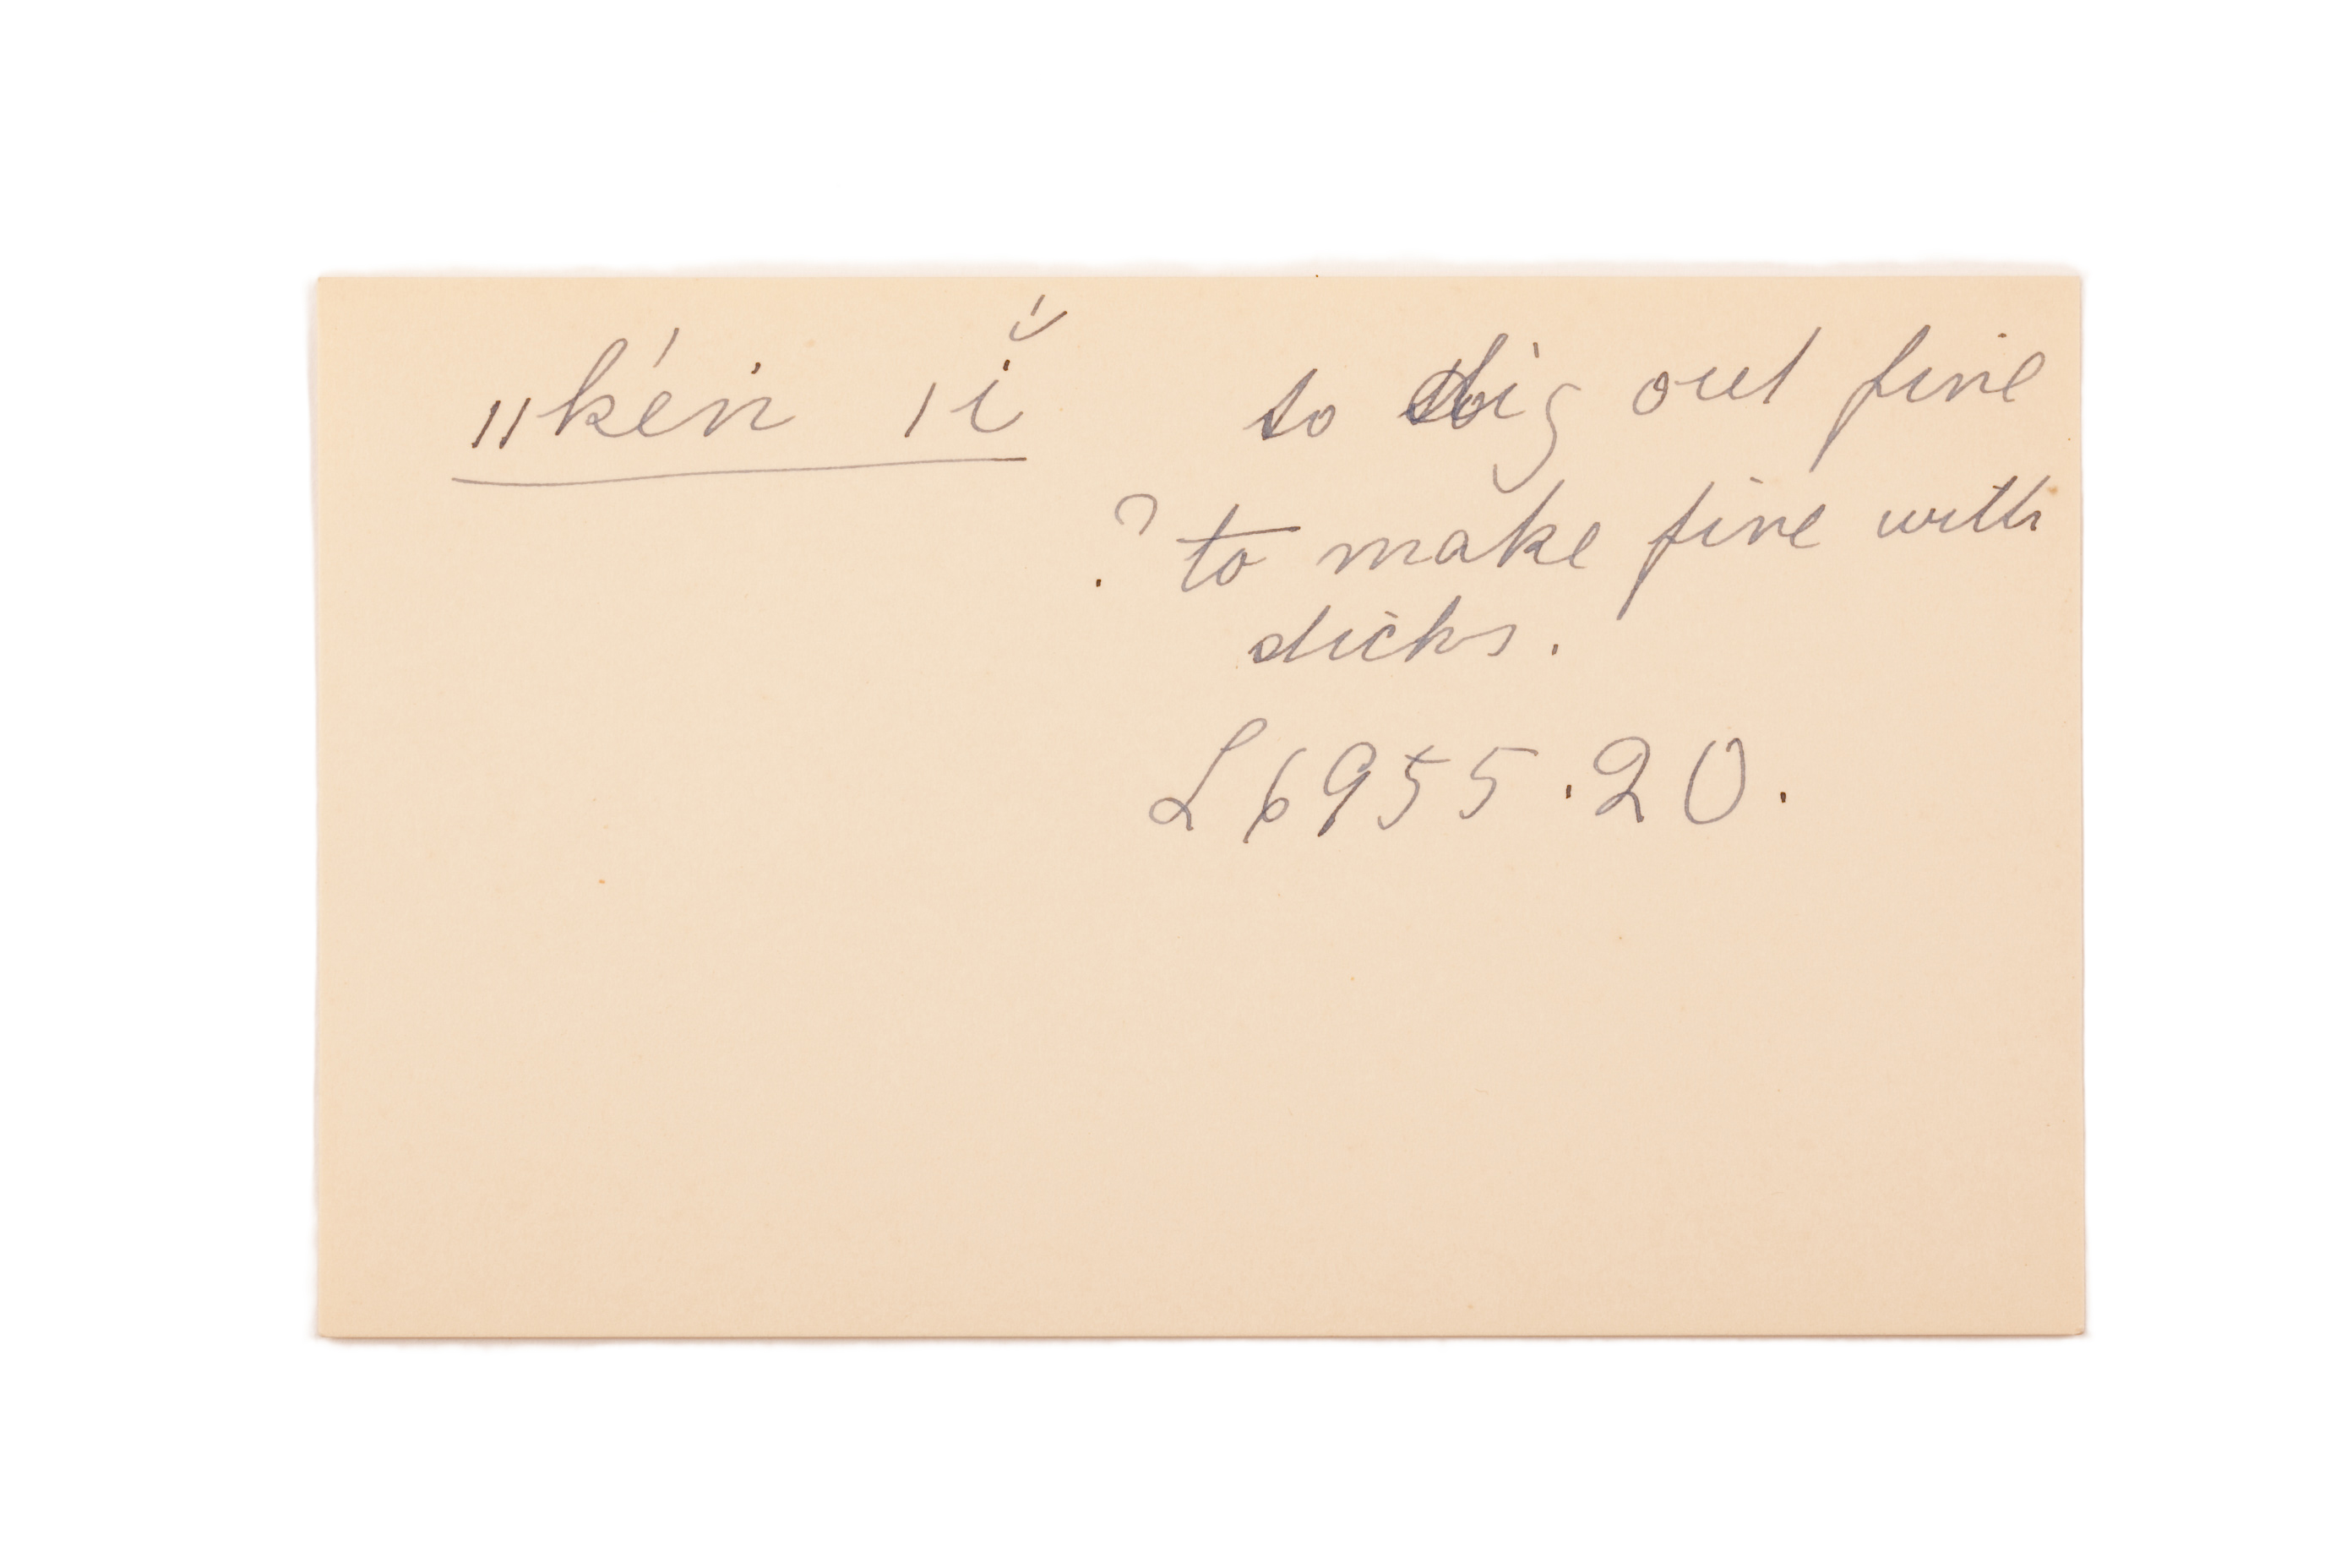 ǁkén ǀĭ́ to dig out fine
? to make fine with
dicks.
L 6955.20.